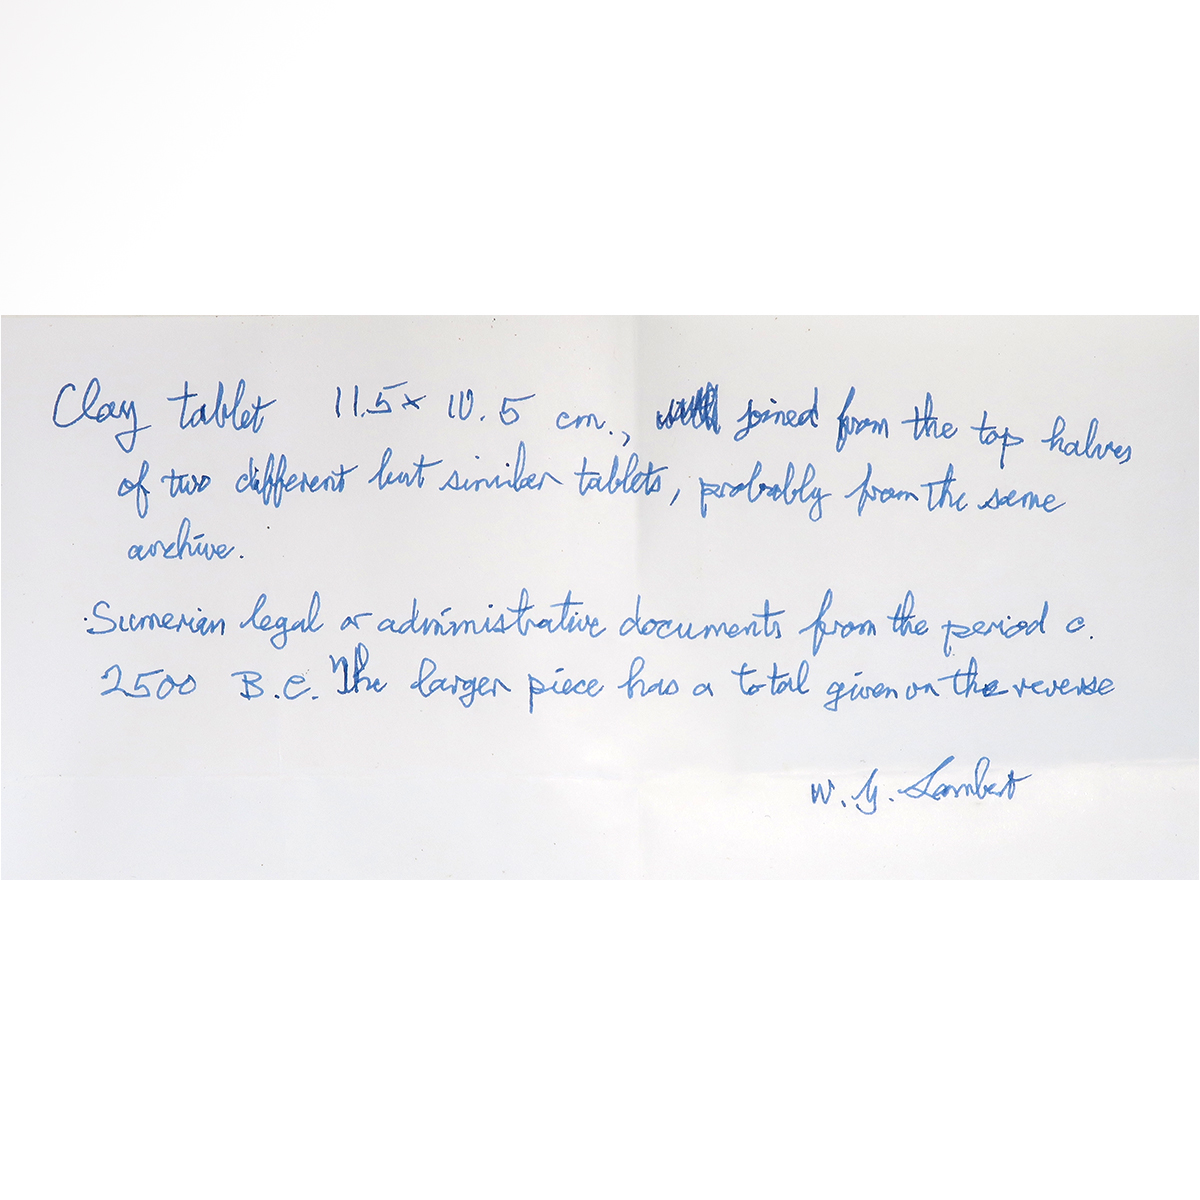 Clay tablet 11.5 × 10.5 cm., joined from the top halves
of two different but similar tablets, probably from the same
archive.
Sumerian legal or administrative documents from the period c.
2500 B.C. The larger piece has a total given on the reverse
W. G. Lambert